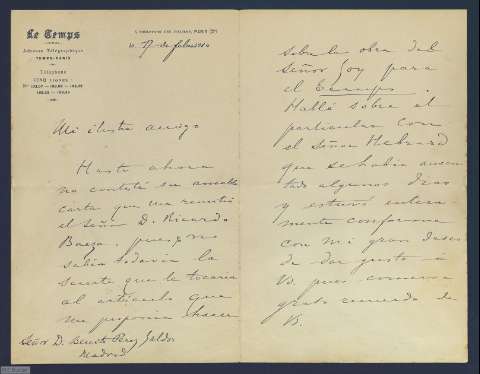 Le Temps
Adresse Télégraphique
TEMPS-PARIS
Téléphone
CINQ LIGNES
5, BOULEVARD DES ITALIENS, PARIS (2e)
17 de
Mi ilustre amigo
Hasta ahora
no contesté su amable
carta que me remitió
el Señor D. Ricardo
Baeza, pues no
sabía todavía la
suerte que le tocaría
al artículo que
me proponía hacer
Señor D. Benito Perez Galdos
Madrid
sobre la obra del
Señor Goy para
el Temps.
Hablé sobre el
particular con
el Señor Hebrard
que se había ausen
tado algunos dias
y estuvo entera
mente conforme
con mi gran deseo
de dar gusto á
V. pues conservo
grato recuerdo de
V.